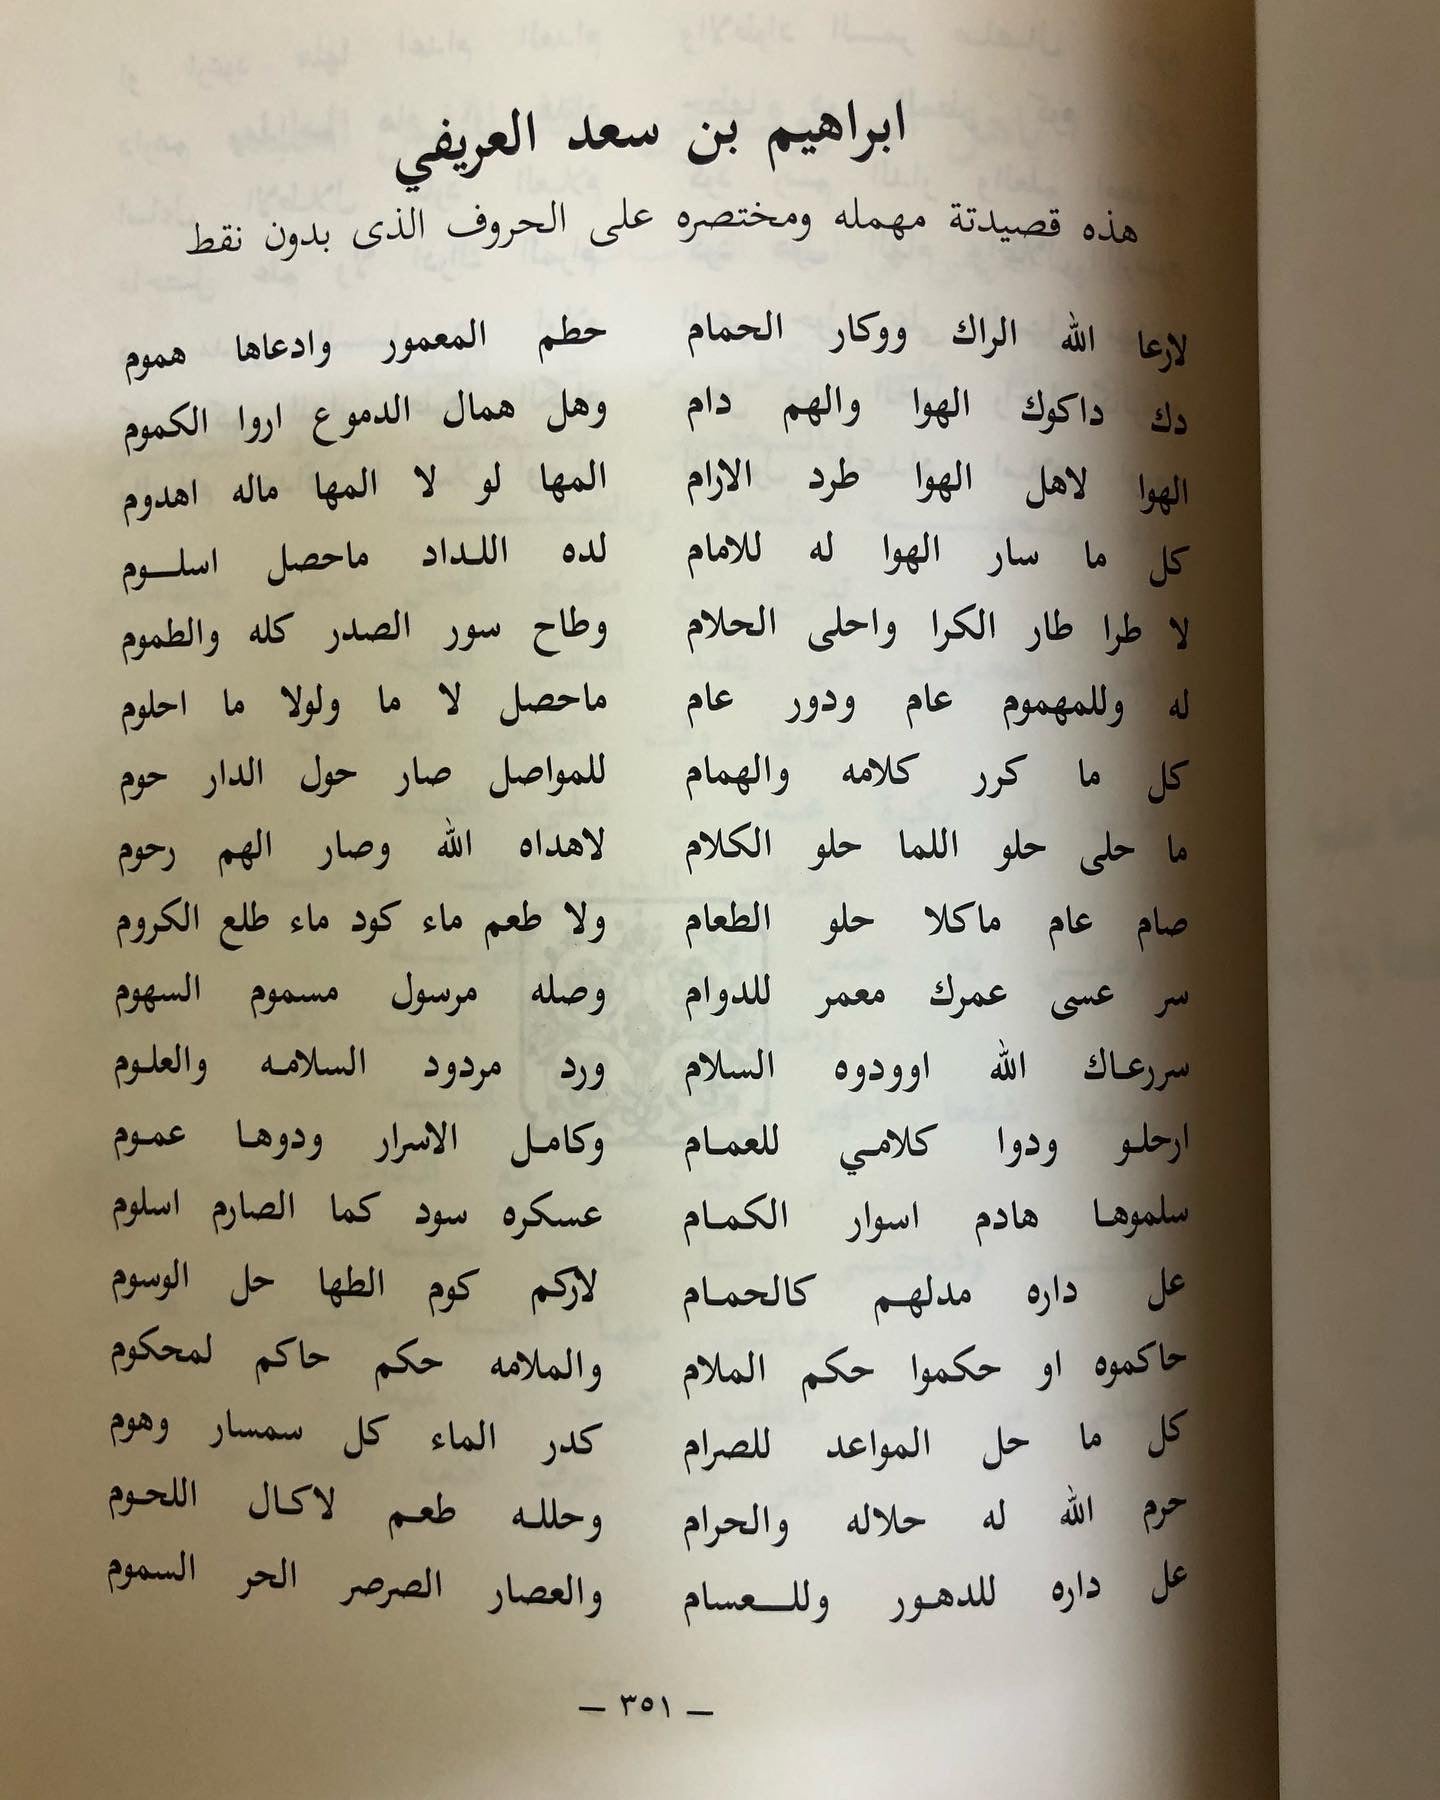 ابراهيم بن سعد العريفي
هذه قصيدتة مهمله ومختصره على الحروف الذى بدون نقط
لارعا الله الراك ووكار الحمام حطم المعمور وادعاها هموم
دك داكوك الهوا والهم دام وهل همال الدموع اروا الكموم
الهوا لاهل الهوا طرد الارام المها لو لا المها ماله اهدوم
كل ما سار الهوا له للامام لده اللـداد ماحصل اسلـــوم
لا طرا طار الكرا واحلى الحلام وطاح سور الصدر كله والطموم
له وللمهموم عام ودور عام ماحصل لا ما ولولا ما احلوم
كل ما كرر كلامه والهمام للمواصل صار حول الدار حوم
ما حلى حلو اللما حلو الكلام لاهداه الله وصار الهم رحوم
صام عام ماكلا حلو الطعام ولا طعم ماء كود ماء طلع الكروم
سر عسى عمرك معمر للدوام وصله مرسول مسموم السهوم
سررعـاك الله اوودوه السلام ورد مردود السلامـه والعلـوم
ارحلـو ودوا كلامـي للعمـام وكامـل الاسرار ودوهـا عمـوم
سلموهـا هادم اسوار الكمـام عسكره سود كما الصارم اسلوم
عل داره مدلهـم كالحمـام لاركم كوم الطها حل الوسوم
حاكموه او حكموا حكم الملام والملامه حكم حاكم لمحكوم
كل ما حل المواعد للصرام كدر الماء كل سمسار وهوم
حرم الله له حلاله والحرام وحللـه طعـم لاكـال اللحـوم
عل داره للدهـور وللـــعسام والعصار الصرصر الحر السموم
— ٣٥١ —